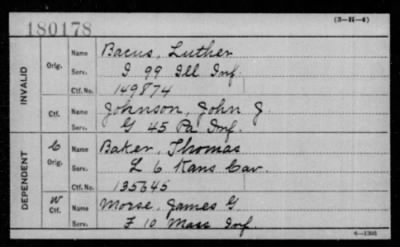 180178
(3-H-4)
INVALID
Orig.
Name Bacus, Luther
Serv. I 99 Ill Inf.
Ctf. No. 149874
Ctf.
Name Johnson, John J.
Serv. G 45 Pa Inf.
DEPENDENT
C
Orig.
Name Baker, Thomas
Serv. L 6 Kans Cav.
Ctf. No. 135645
W
Ctf.
Name Morse, James G
Serv. F 10 Mass Inf.